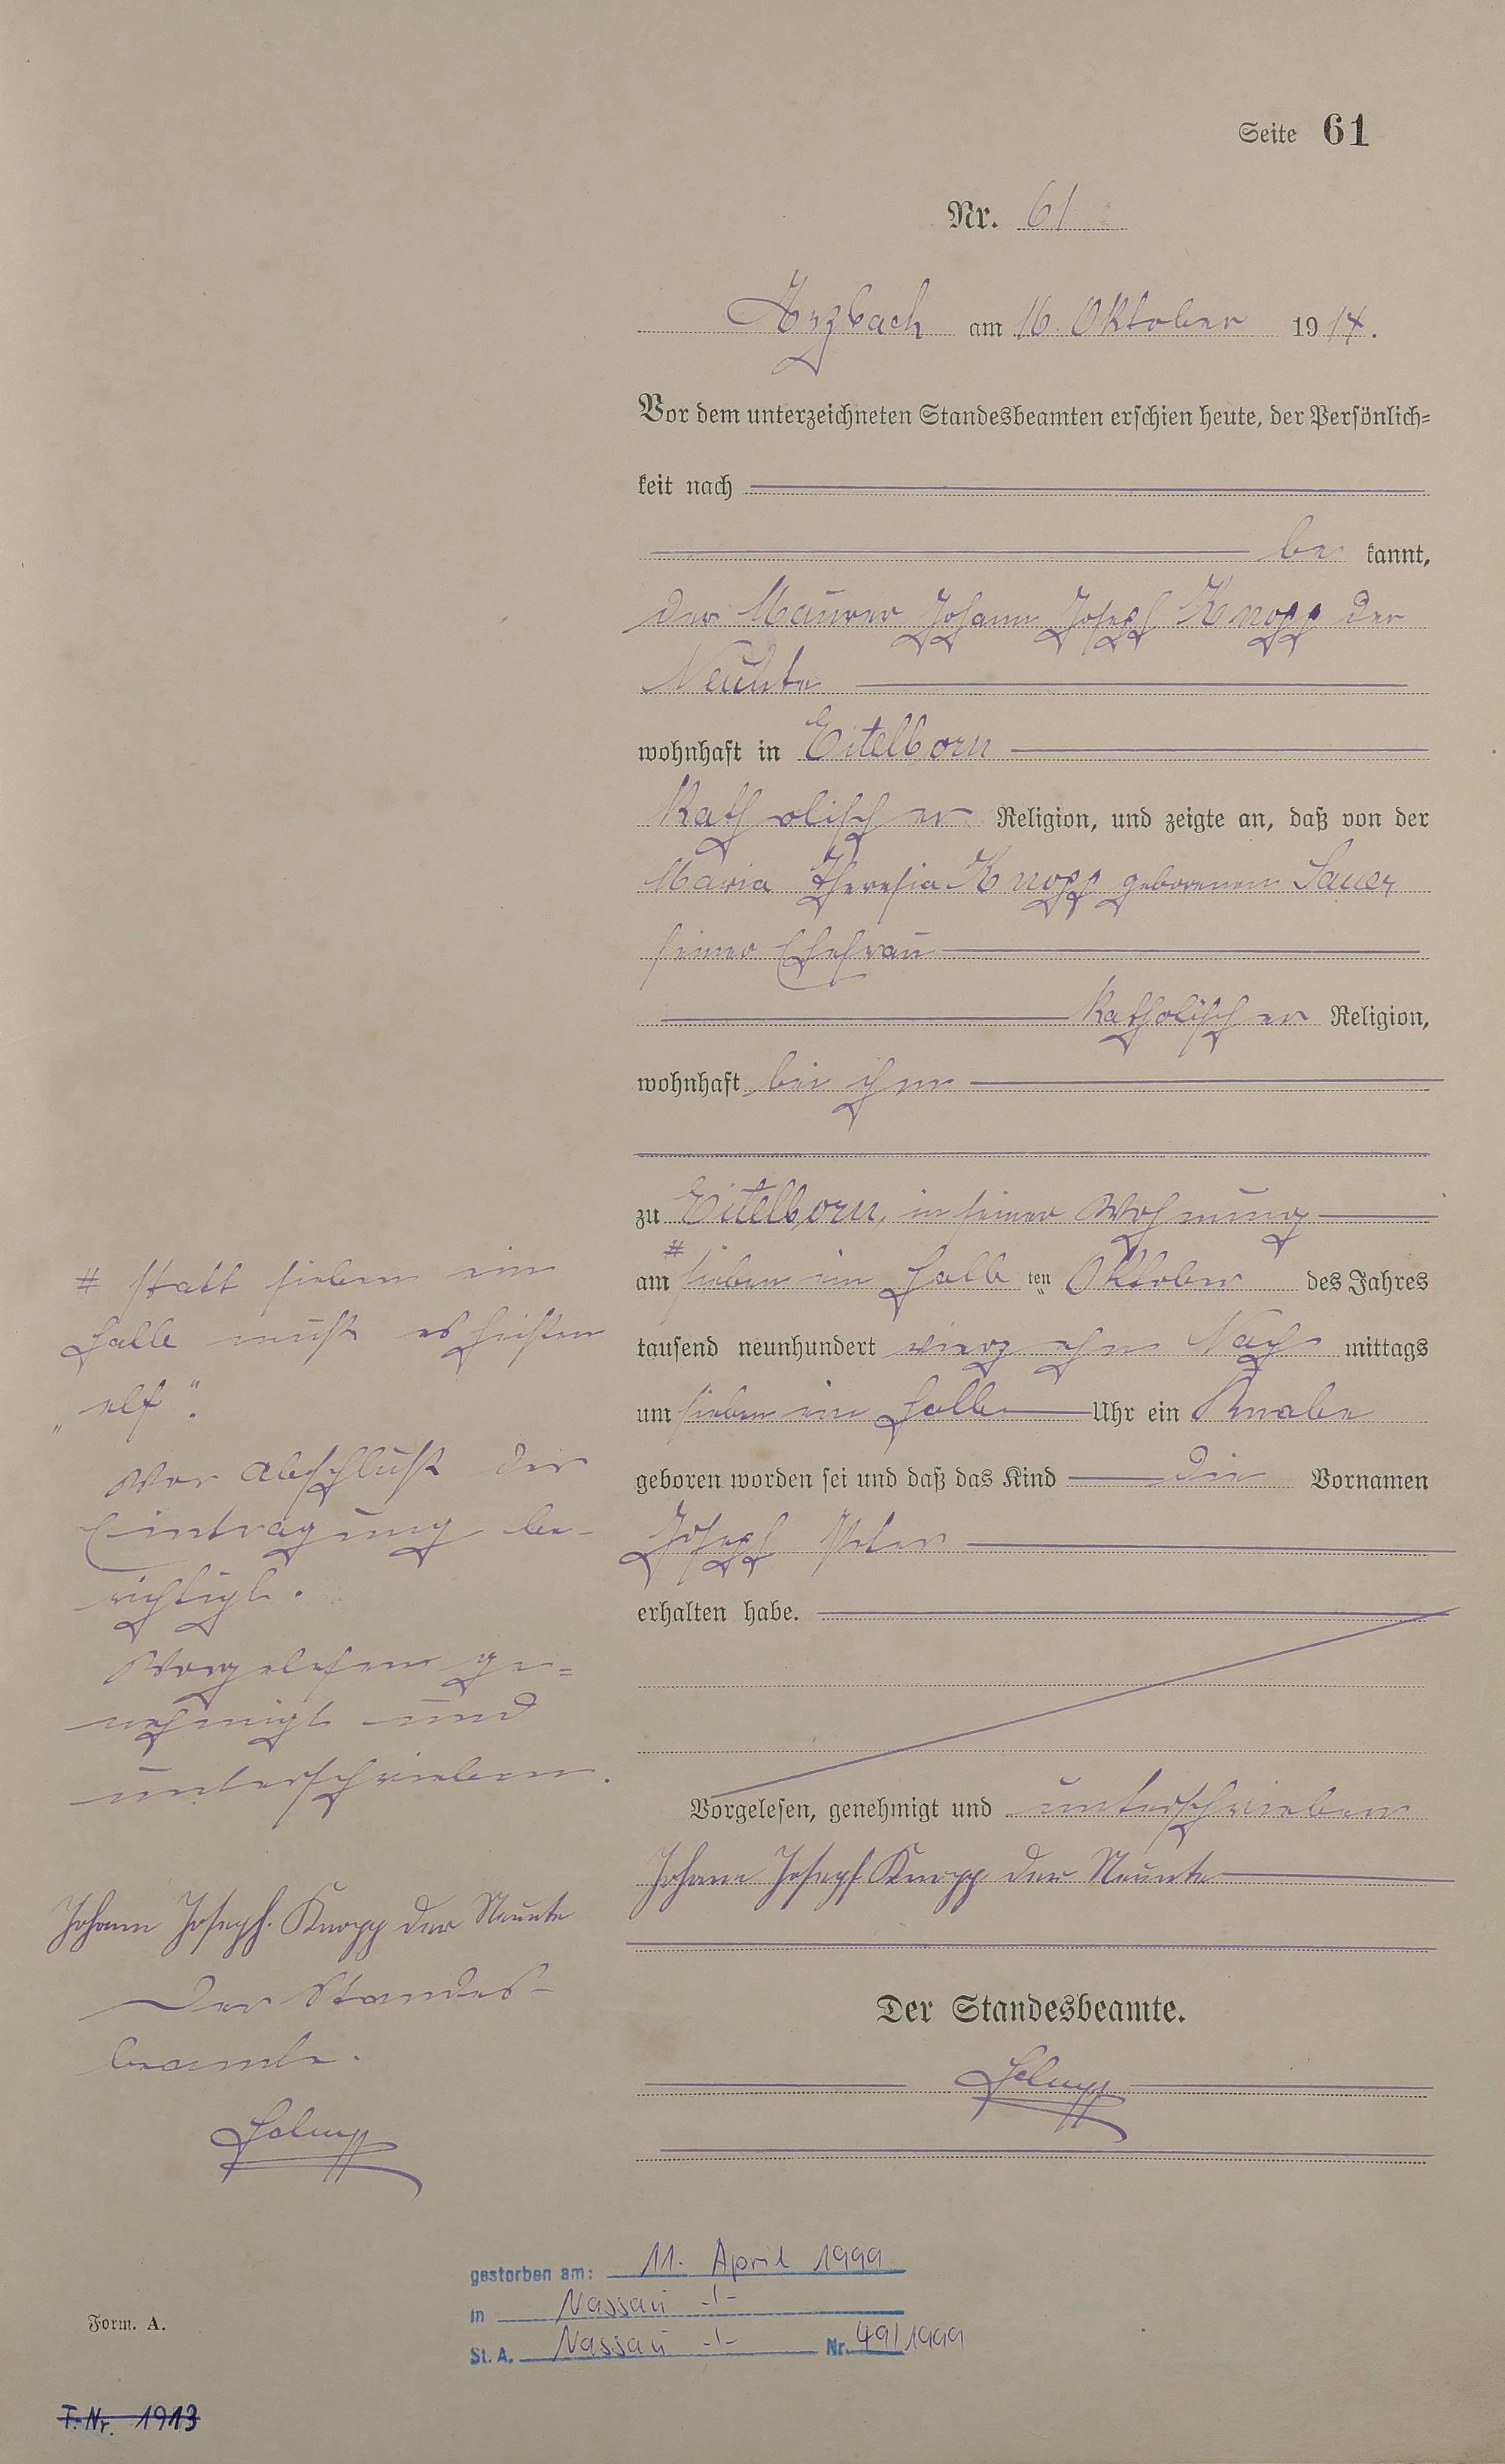 Seite 61
Nr. 61
Arzbach am 16. Oktober 1914.
Vor dem unterzeichneten Standesbeamten erschien heute, der Persönlich=
keit nach
be kannt,
der Maurer Johann Joseph Knopp der
Neunte
wohnhaft in Eitelborn
katholischer Religion, und zeigte an, daß von der
Maria Theresia Knopp geborenen Sauer
seiner Ehefrau
katholischer Religion,
wohnhaft bei ihm
zu Eitelborn, in seiner Wohnung
am # sieben ein halb ten Oktober des Jahres
tausend neunhundert vierzehn Nach mittags
um sieben ein halb Uhr ein Knabe
geboren worden sei und daß das Kind die Vornamen
Joseph Peter
erhalten habe.
Vorgelesen, genehmigt und unterschrieben
Johann Joseph Knopp der Neunte
Der Standesbeamte.
# statt sieben ein
halb muß es heißen
„elf“.
Vor Abschluß der
Eintragung be-
richtigt.
Vorgelesen ge=
nehmigt und
unterschrieben.
Johann Joseph Knopp der Neunte
Der Standes-
beamte.
gestorben am: 11. April 1999
in Nassau -/-
St. A. Nassau -/- Nr. 49/1999
Form. A.
T.-Nr. 1913